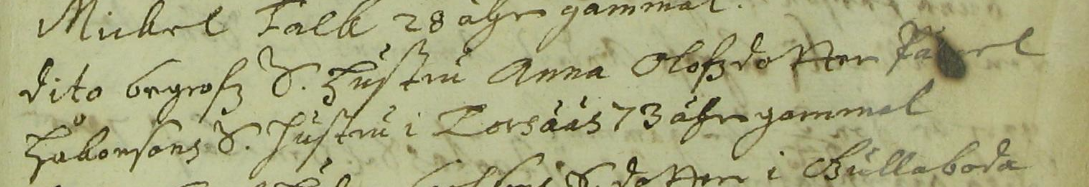 Mickel Falk 28 åhr gammal.
dito begrofz S. Hustru Anna Olofzdotter
Håkonsons S. Hustru i Torsåås 73 åhr gammal
S. dotter i Gullaboda